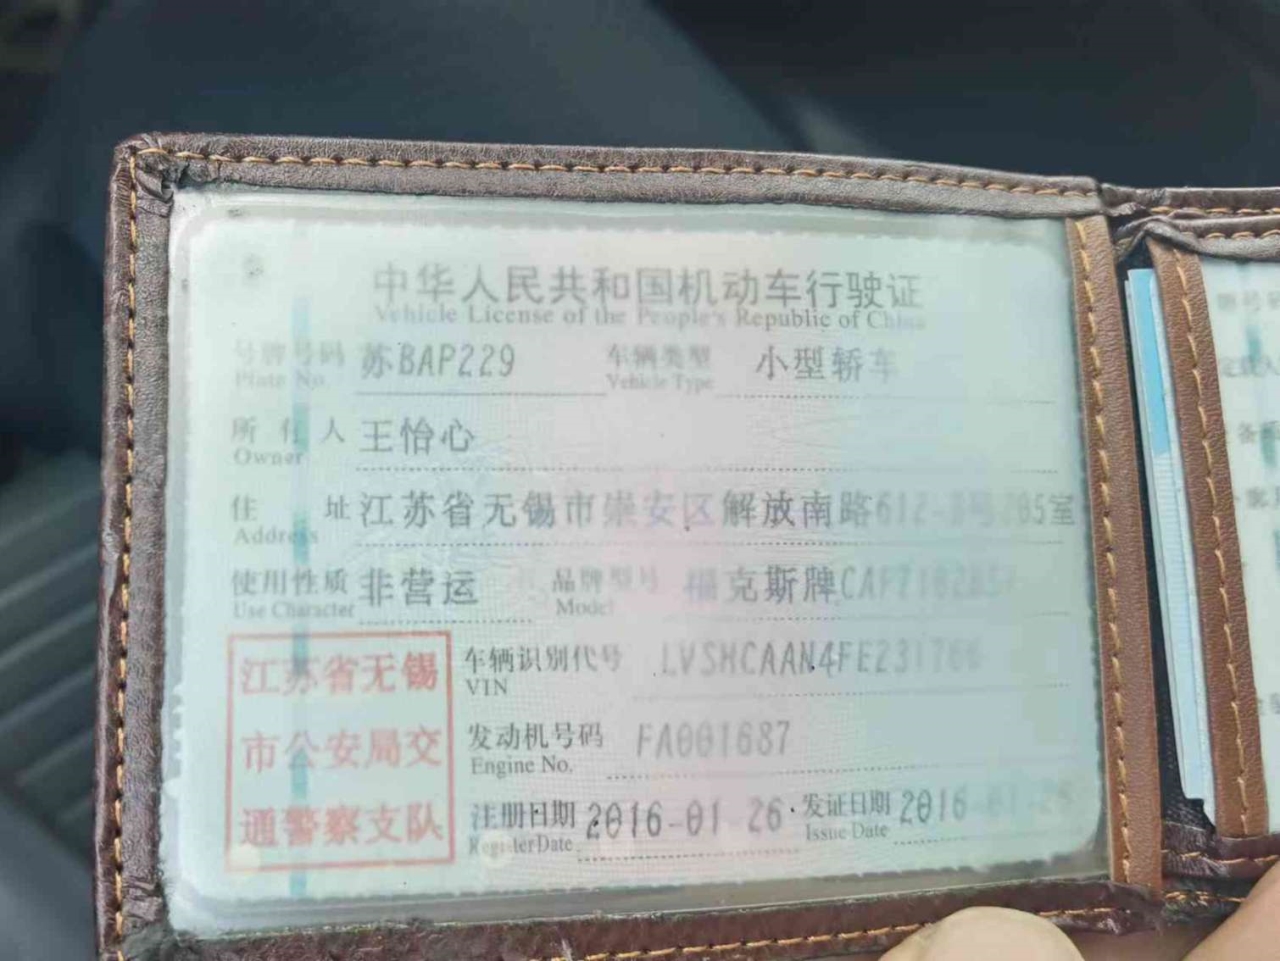 中华人民共和国机动车行驶证
Vehicle License of the People's Republic of China
号牌号码 苏BAP229 车辆类型 小型轿车
Plate No. Vehicle Type
所有人 王怡心
Owner
住址 江苏省无锡市崇安区解放南路612-
Address
使用性质 非营运 品牌型号 福克斯牌
Use Character Model
车辆识别代号
VIN
发动机号码 FA001687
Engine No.
注册日期 2016-01-26 发证日期 2016
Register Date Issue Date
江苏省无锡
市公安局交
通警察支队